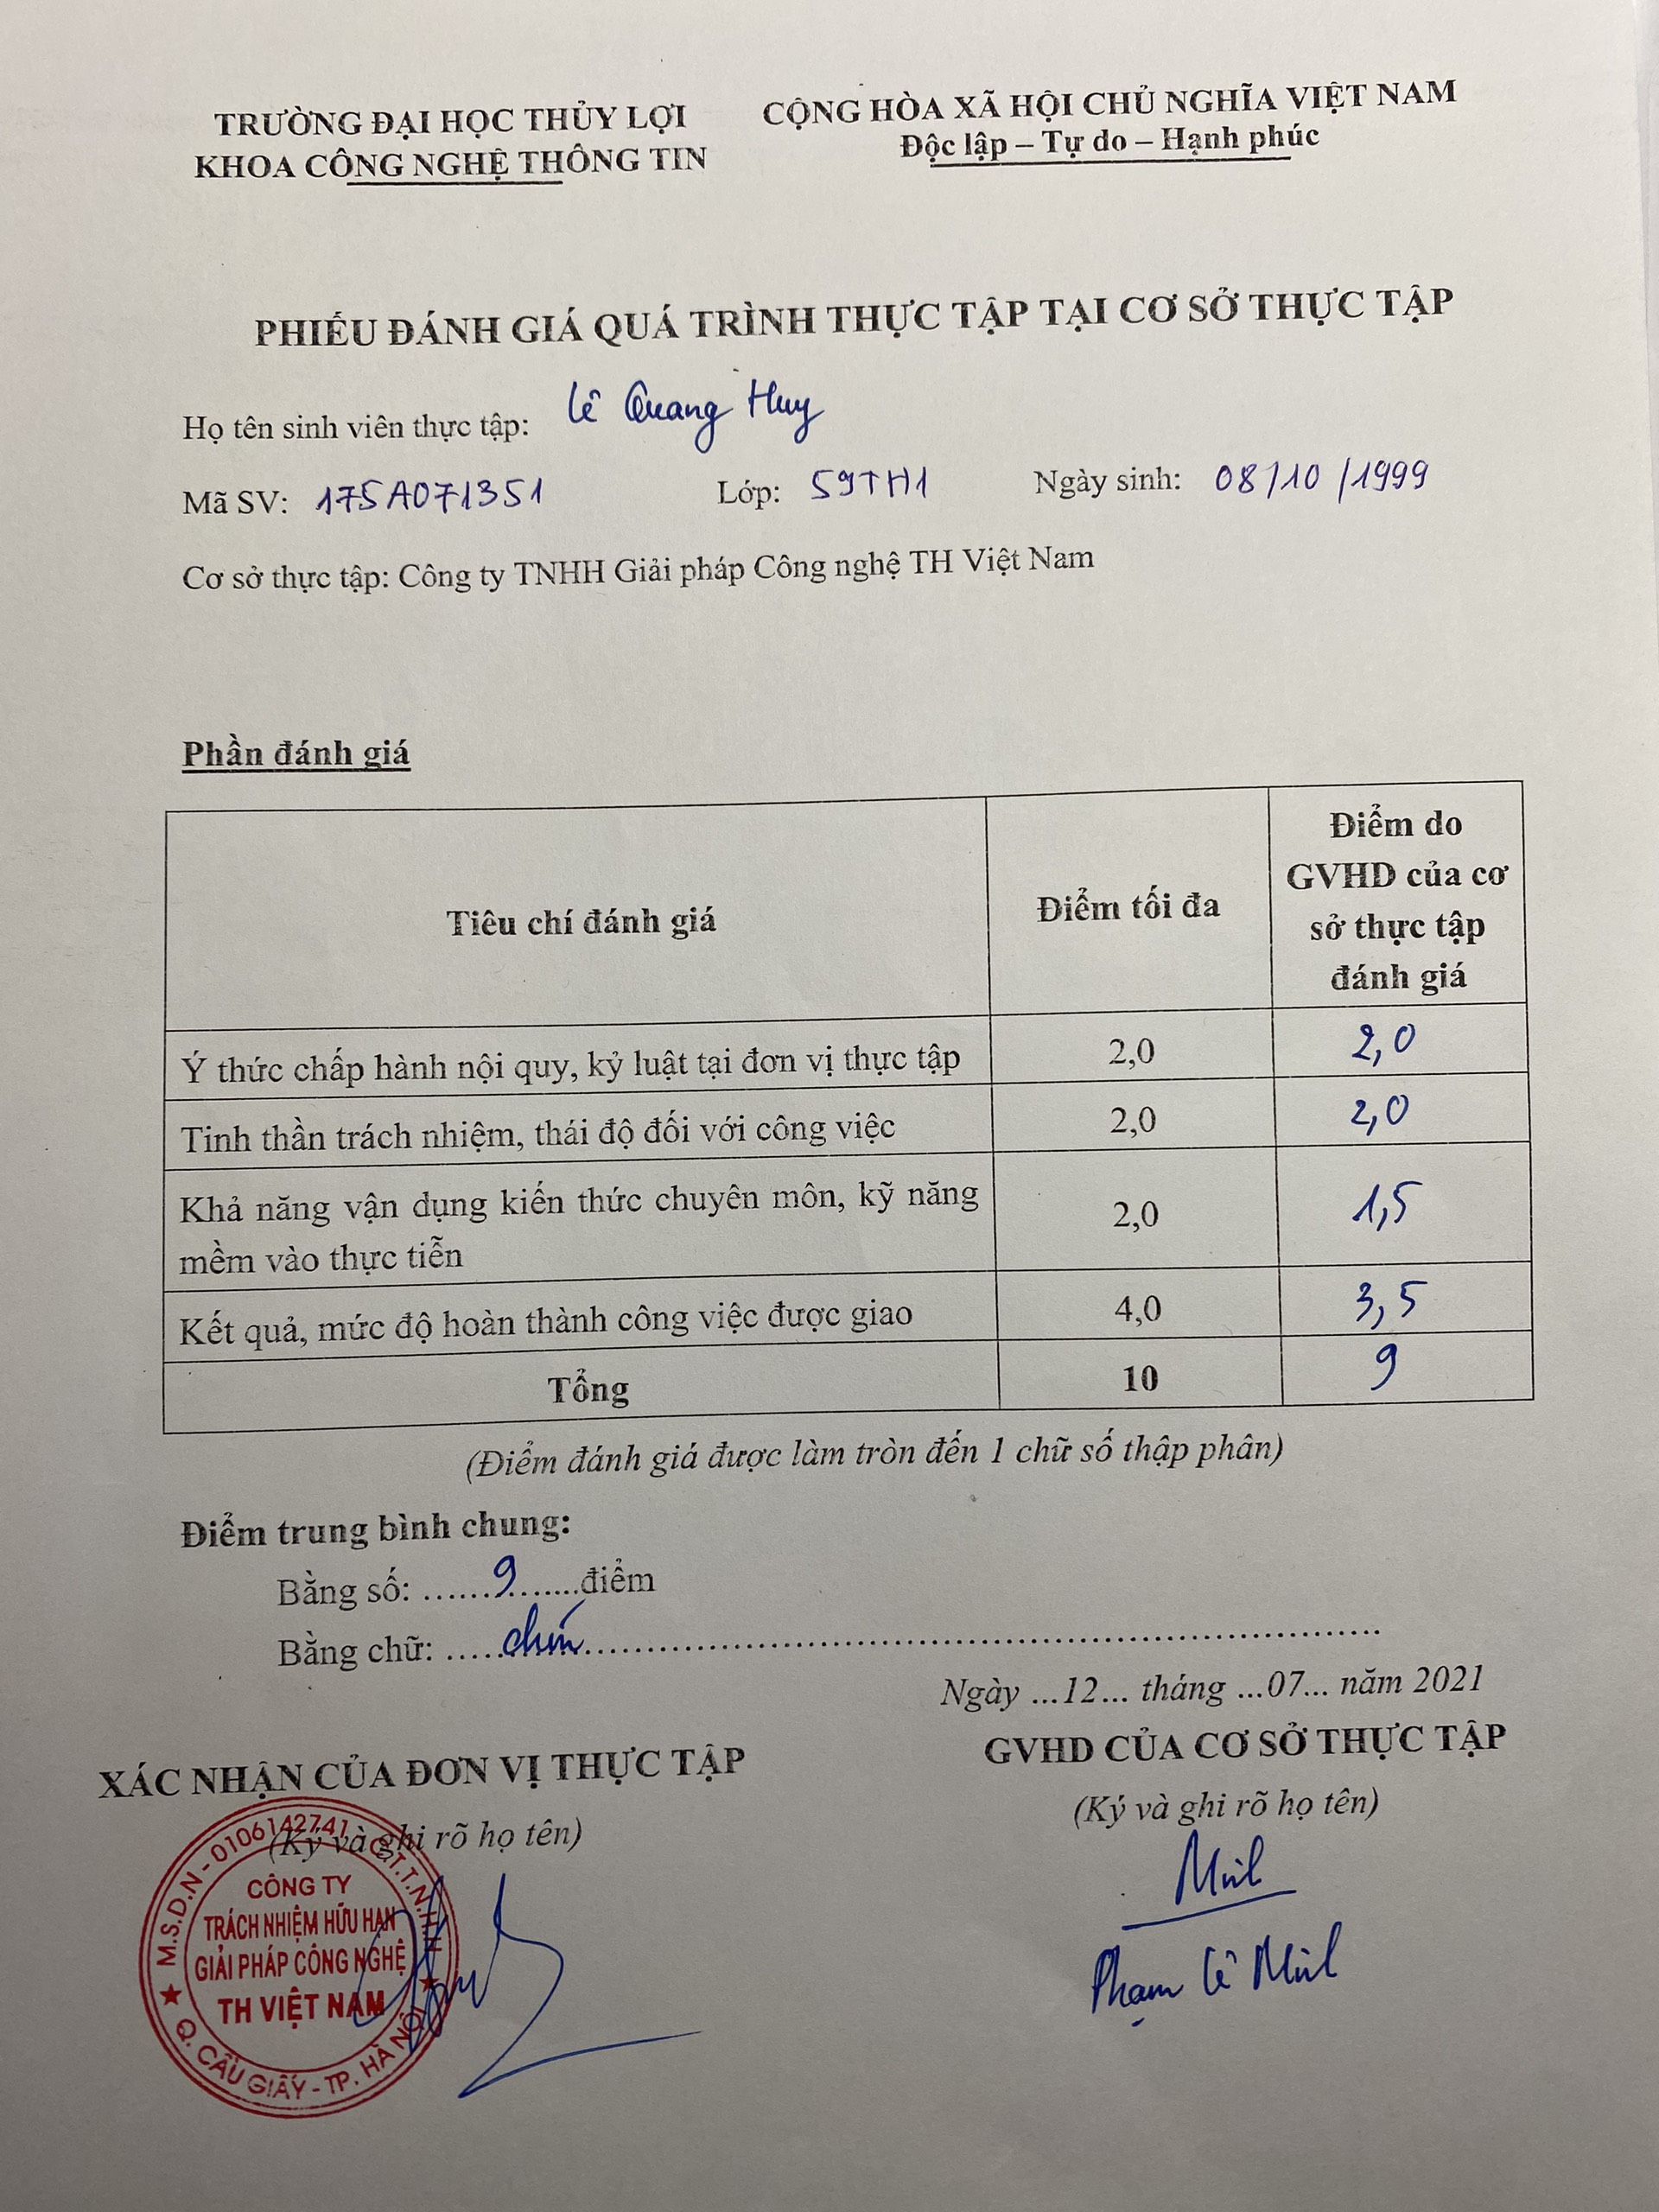 TRƯỜNG ĐẠI HỌC THỦY LỢI
KHOA CÔNG NGHỆ THÔNG TIN
CỘNG HÒA XÃ HỘI CHỦ NGHĨA VIỆT NAM
Độc lập – Tự do – Hạnh phúc
PHIẾU ĐÁNH GIÁ QUÁ TRÌNH THỰC TẬP TẠI CƠ SỞ THỰC TẬP
Họ tên sinh viên thực tập: Lê Quang Huy
Mã SV: 175A071351 Lớp: 59TH1 Ngày sinh: 08/10/1999
Cơ sở thực tập: Công ty TNHH Giải pháp Công nghệ TH Việt Nam
Phần đánh giá
Tiêu chí đánh giá
Điểm tối đa
Điểm do
GVHD của cơ
sở thực tập
đánh giá
Ý thức chấp hành nội quy, kỷ luật tại đơn vị thực tập 2,0 2,0
Tinh thần trách nhiệm, thái độ đối với công việc 2,0 2,0
Khả năng vận dụng kiến thức chuyên môn, kỹ năng
mềm vào thực tiễn 2,0 1,5
Kết quả, mức độ hoàn thành công việc được giao 4,0 3,5
Tổng 10 9
(Điểm đánh giá được làm tròn đến 1 chữ số thập phân)
Điểm trung bình chung:
Bằng số: ......9.......điểm
Bằng chữ: .....chín..............................
Ngày ...12... tháng ...07... năm 2021
XÁC NHẬN CỦA ĐƠN VỊ THỰC TẬP
(Ký và ghi rõ họ tên)
GVHD CỦA CƠ SỞ THỰC TẬP
(Ký và ghi rõ họ tên)
M.S.D.N - 0106142741 - C.T.T.N.H.H
CÔNG TY
TRÁCH NHIỆM HỮU HẠN
GIẢI PHÁP CÔNG NGHỆ
TH VIỆT NAM
Q. CẦU GIẤY - TP. HÀ NỘI
Phạm Lê